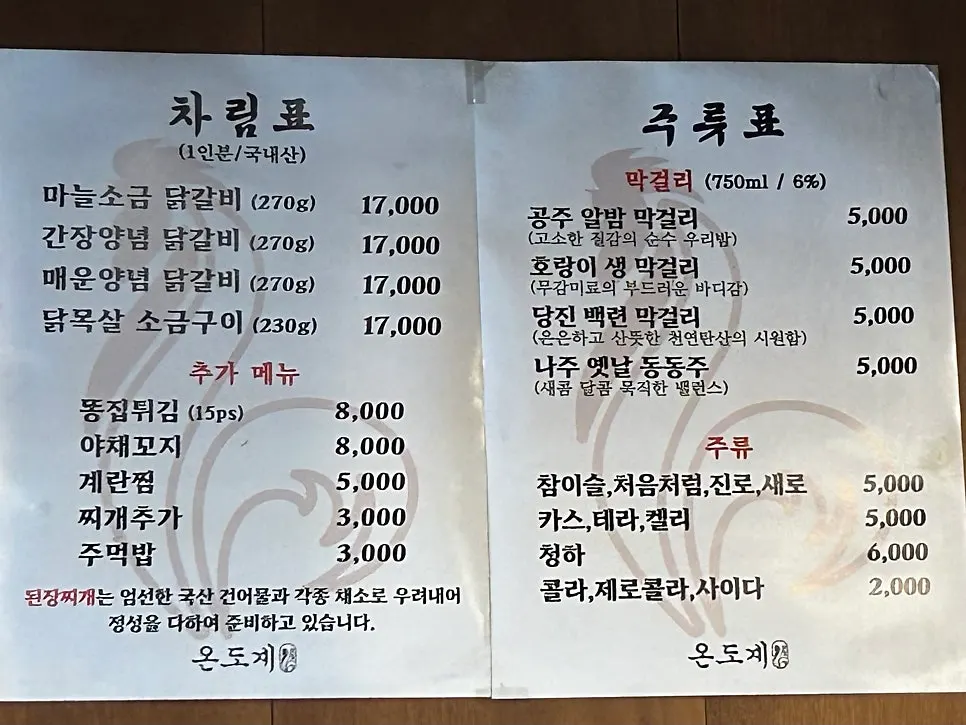 차림표
(1인분/국내산)
마늘소금 닭갈비 (270g) 17,000
간장양념 닭갈비 (270g) 17,000
매운양념 닭갈비 (270g) 17,000
닭목살 소금구이 (230g) 17,000
추가 메뉴
똥집튀김 (15ps) 8,000
야채꼬지 8,000
계란찜 5,000
찌개추가 3,000
주먹밥 3,000
된장찌개는 엄선한 국산 건어물과 각종 채소로 우려내어
정성을 다하여 준비하고 있습니다.
온도계
주류표
막걸리 (750ml / 6%)
공주 알밤 막걸리 5,000
(고소한 질감의 순수 우리밤)
호랑이 생 막걸리 5,000
(무감미료의 부드러운 바디감)
당진 백련 막걸리 5,000
(은은하고 산뜻한 천연탄산의 시원함)
나주 옛날 동동주 5,000
(새콤 달콤 묵직한 밸런스)
주류
참이슬,처음처럼,진로,새로 5,000
카스,테라,켈리 5,000
청하 6,000
콜라,제로콜라,사이다 2,000
온도계